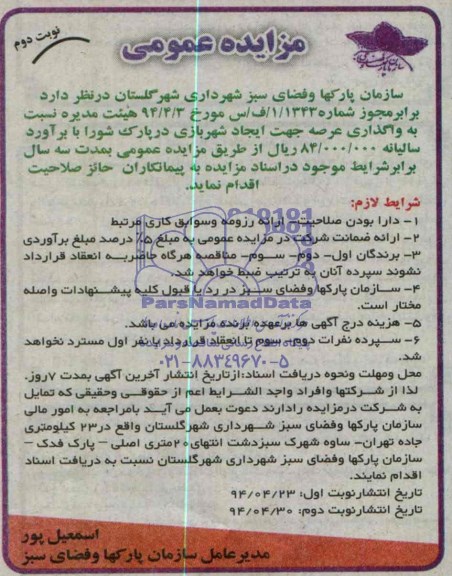 نوبت دوم
مزایده عمومی
سازمان پارکها وفضای سبز شهرداری شهرگلستان درنظر دارد
برابرمجوز شماره۱/۱۳۴۳/ف/س مورخ ۹۴/۴/۳ هیئت مدیره نسبت
به واگذاری عرصه جهت ایجاد شهربازی درپارک شورا با برآورد
سالیانه ۸۴/۰۰۰/۰۰۰ ریال از طریق مزایده عمومی بمدت سه سال
برابرشرایط موجود دراسناد مزایده به پیمانکاران حائز صلاحیت
اقدام نماید.
شرایط لازم:
۱- دارا بودن صلاحیت – ارائه رزومه وسوابق کاری مرتبط
۲- ارائه ضمانت شرکت در مزایده عمومی به مبلغ ۵٪ درصد مبلغ برآوردی
۳- برندگان اول- دوم- سوم- مناقصه هرگاه حاضربه انعقاد قرارداد
نشوند سپرده آنان به ترتیب ضبط خواهد شد.
۴- سازمان پارکها وفضای سبز در رد یا قبول کلیه پیشنهادات واصله
مختار است.
ParsNamadData
۵- هزینه درج آگهی ها برعهده برنده مزایده می باشد.
۶- سپرده نفرات دوم- سوم تا انعقاد قرارداد با نفر اول مسترد نخواهد
شد.
۰۲۱-۸۸۳۴۹۶۷۰-۵
محل ومهلت ونحوه دریافت اسناد:ازتاریخ انتشار آخرین آگهی بمدت ۷روز.
لذا از شرکتها وافراد واجد الشرایط اعم از حقوقی وحقیقی که تمایل
به شرکت درمزایده رادارند دعوت بعمل می آید بامراجعه به امور مالی
سازمان پارکها وفضای سبز شهرداری شهرگلستان واقع در۲۳ کیلومتری
جاده تهران- ساوه شهرک سبزدشت انتهای۲۰متری اصلی – پارک فدک –
سازمان پارکها وفضای سبز شهرداری شهرگلستان نسبت به دریافت اسناد
اقدام نمایند.
تاریخ انتشارنوبت اول: ۹۴/۰۴/۲۳
تاریخ انتشارنوبت دوم: ۹۴/۰۴/۳۰
اسمعیل پور
مدیرعامل سازمان پارکها وفضای سبز